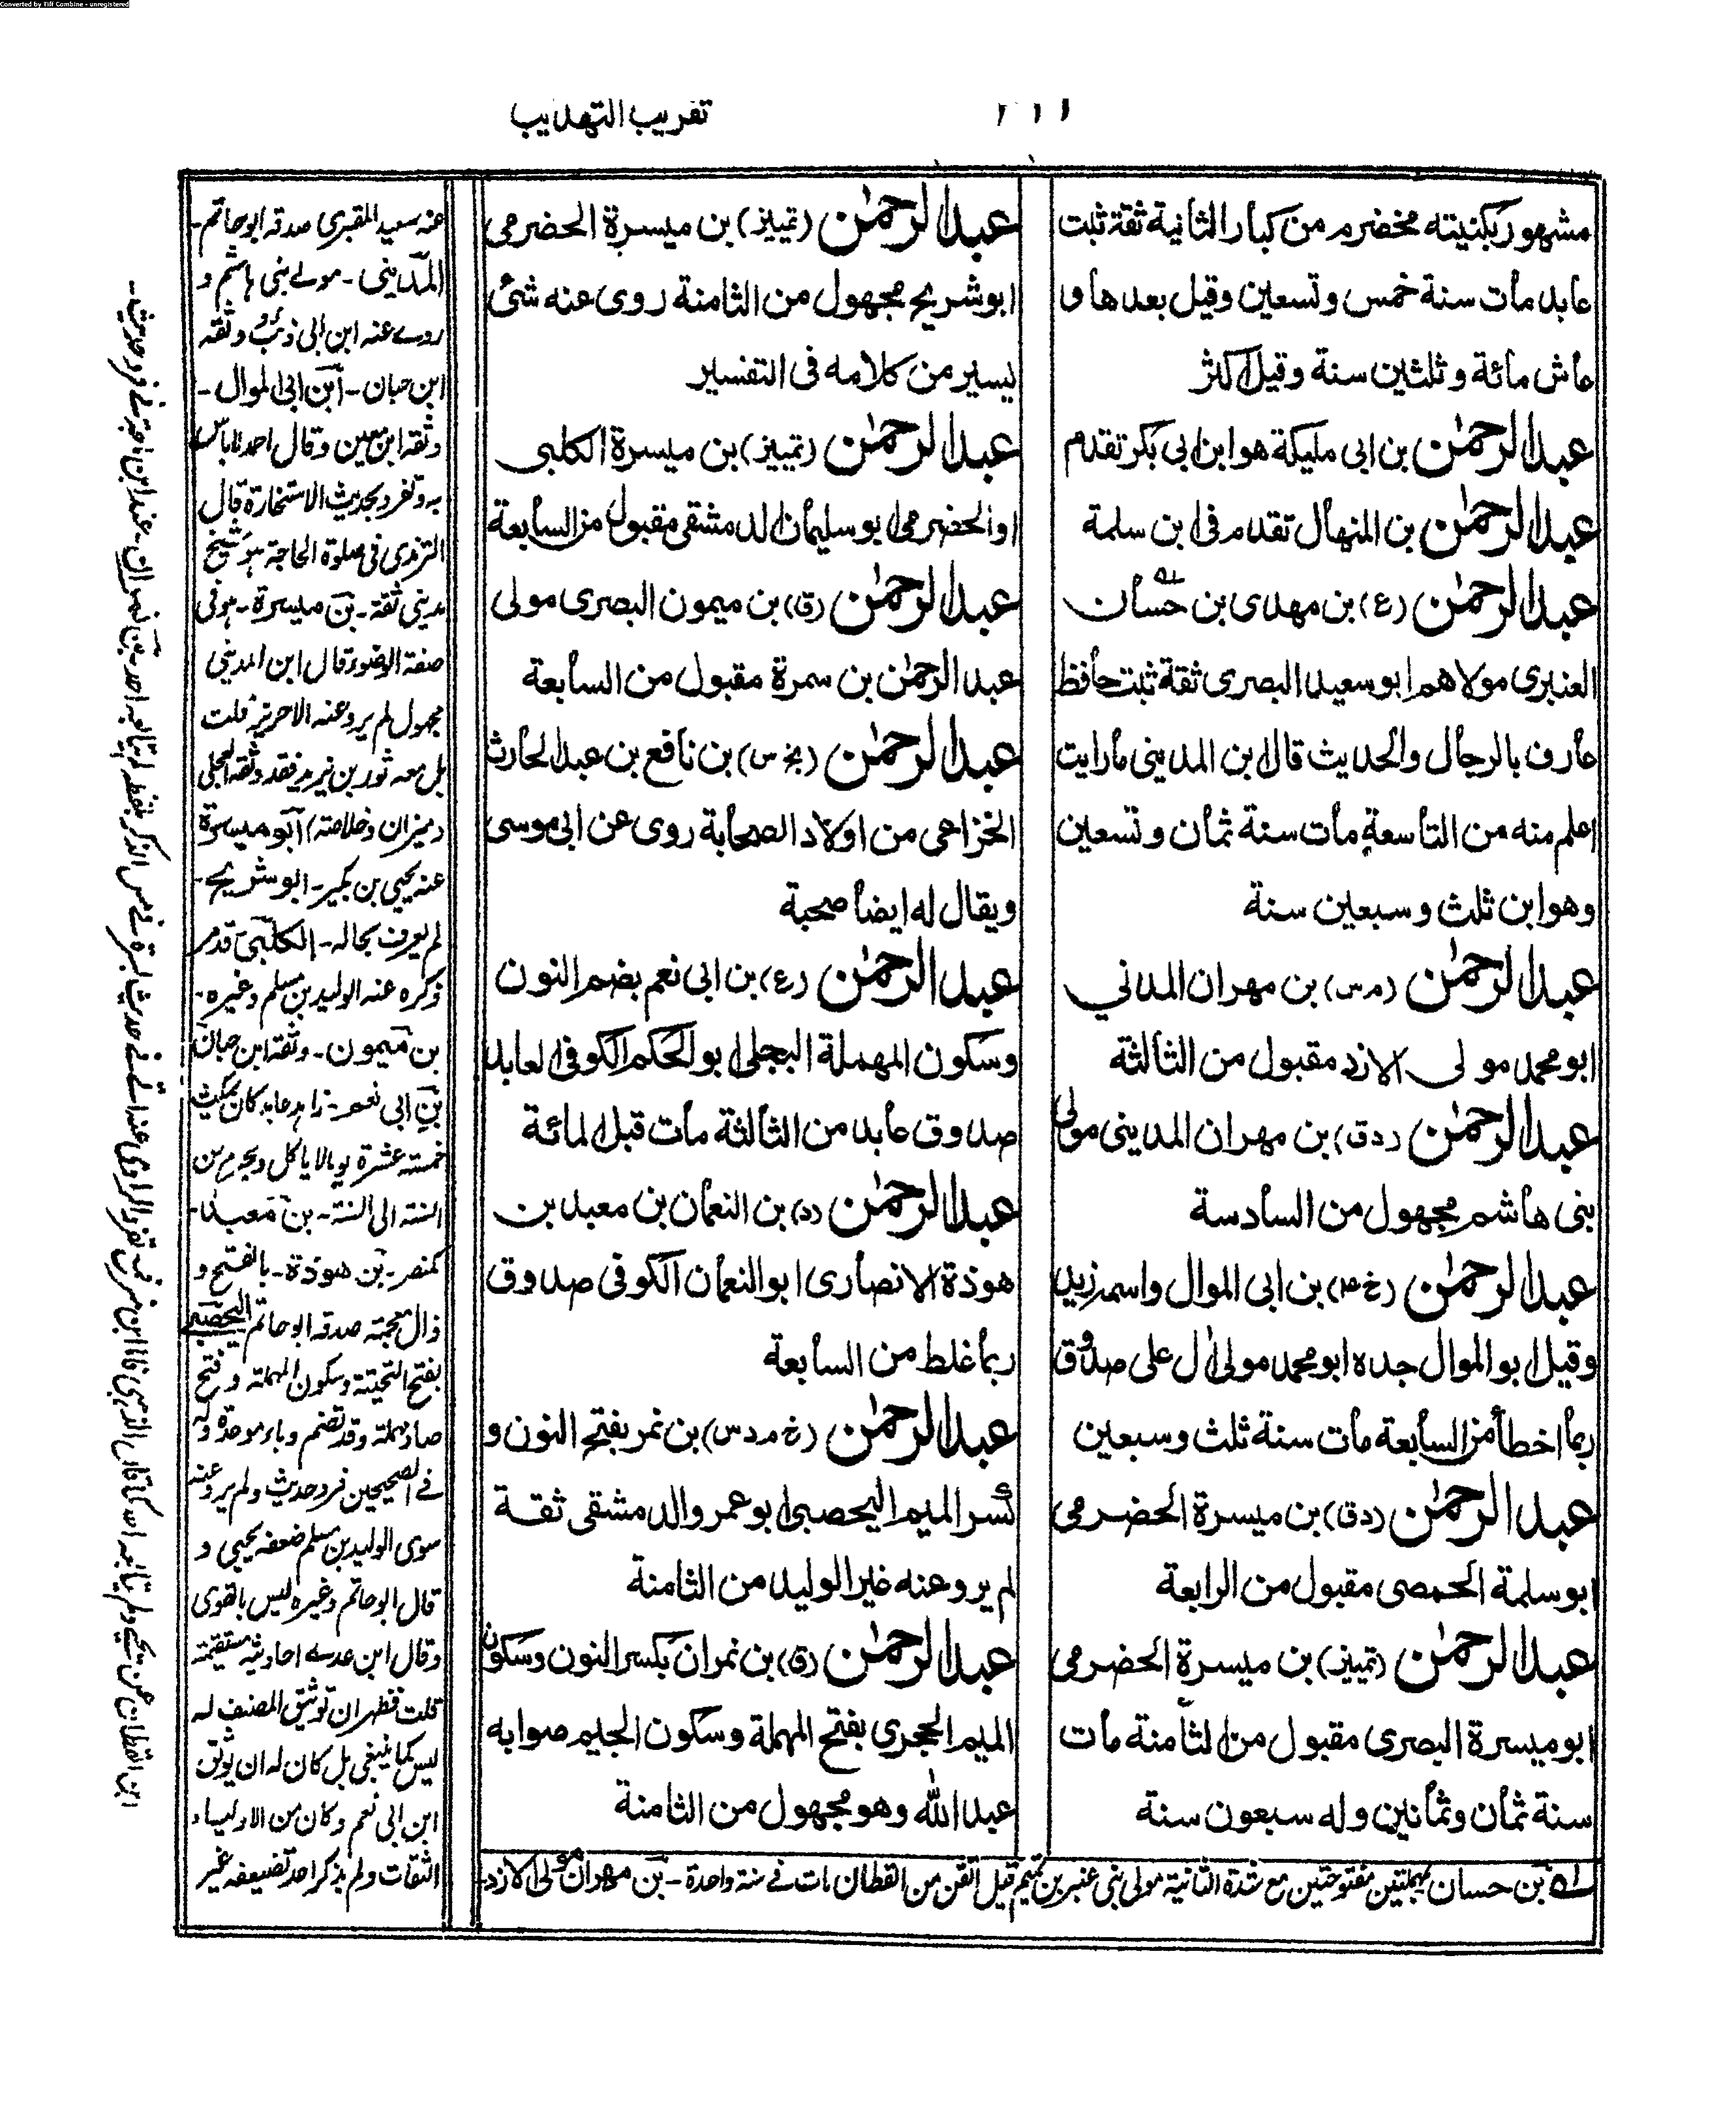 Converted by Tiff Combine - unregistered
تقريب التهذيب
مشهور بكنيته مخضرم من كبار الثانية ثقة ثبت
عابد مات سنة خمس وتسعين وقيل بعدها و
عاش مائة وثلثين سنة وقيل اكثر
عبد الرحمٰن بن ابى مليكة هو ابن ابى بكر تقدم
عبد الرحمٰن بن المنهال تقدم فى ابن سلمة
عبد الرحمٰن (ع) بن مهدى بن حسان
العنبرى مولاهم ابو سعيد البصرى ثقة ثبت حافظ
عارف بالرجال والحديث قال ابن المدينى ما رايت
اعلم منه من التاسعة مات سنة ثمان وتسعين
وهو ابن ثلث وسبعين سنة
عبد الرحمٰن (م س) بن مهران المدني
ابو محمد مولى الازد مقبول من الثالثة
عبد الرحمٰن (د ق) بن مهران المدينى مولى
بنى هاشم مجهول من السادسة
عبد الرحمٰن (خ ٤) بن ابى الموال واسمه زيد
وقيل ابو الموال جده ابو محمد مولى اٰل على صدوق
ربما اخطأ من السابعة مات سنة ثلث وسبعين
عبد الرحمٰن (د ق) بن ميسرة الحضرمى
ابو سلمة الحمصى مقبول من الرابعة
عبد الرحمٰن (تمييز) بن ميسرة الحضرمى
ابو ميسرة البصرى مقبول من الثامنة مات
سنة ثمان وثمانين وله سبعون سنة
عبد الرحمٰن (تمييز) بن ميسرة الحضرمى
ابو شريح مجهول من الثامنة روى عنه شئ
يسير من كلامه فى التفسير
عبد الرحمٰن (تمييز) بن ميسرة الكلبى
او الحضرمى ابو سليمان الدمشقى مقبول من السابعة
عبد الرحمٰن (ق) بن ميمون البصرى مولى
عبد الرحمٰن بن سمرة مقبول من السابعة
عبد الرحمٰن (بخ س) بن نافع بن عبد الحارث
الخزاعى من اولاد الصحابة روى عن ابى موسى
ويقال له ايضا صحبة
عبد الرحمٰن (ع) بن ابى نعم بضم النون
وسكون المهملة البجلى ابو الحكم الكوفى العابد
صدوق عابد من الثالثة مات قبل المائة
عبد الرحمٰن (د) بن النعمان بن معبد بن
هوذة الانصارى ابو النعمان الكوفى صدوق
ربما غلط من السابعة
عبد الرحمٰن (خ م د س) بن نمر بفتح النون و
كسر الميم اليحصبى ابو عمرو الدمشقى ثقة
لم يرو عنه غير الوليد من الثامنة
عبد الرحمٰن (ق) بن نمران بكسر النون وسكون
الميم الحجرى بفتح المهملة وسكون الجيم صوابه
عبد الله وهو مجهول من الثامنة
له بن حسان بمهملتين مفتوحتين مع شدة الثانية مولى بنى عنبر بن تميم قيل اتقن من القطان مات فے سنة واحدة - بن مهران مولى الازد
عنه سعيد المقبرى صدقه ابو حاتم -
المدينى - مولے بنى هاشم و
روے عنه ابن ابى ذئب وثقه
ابن حبان - ابن ابى لموال -
وثقه ابن معين وقال احمد لا باس
به وتفرد بحديث الاستخارة قال
الترمذى فى صلوة الحاجة هو شيخ
مدينى ثقة - بن ميسرة - هو فى
صفة الوضوء قال ابن المدينى
مجهول لم يرو عنه الا حريز قلت
بل معه ثور بن يزيد فقد وثقه العجلى
(ميزان وخلاصة) ابو ميسرة
عنه يحيى بن بكير - ابو شريح -
لم يعرف بحاله - الكلبى تقدم
ذكره عنه الوليد بن مسلم وغيره -
بن ميمون - وثقه ابن حبان
بن ابى نعم - زاهد عابد كان يمكث
خمسة عشرة يوما لا ياكل ويحرم من
السنة الى السنة - بن معبد -
كمنصر - بن هوذة - بالفتح و
ذال معجمة صدقه ابو حاتم اليحصبے
بفتح التحتية وسكون المهملة وفتح
صاد مهملة وقد تضم وباء موحدة له
فے الصحيحين فرد حديث ولم يرو عنه
سوى الوليد بن مسلم ضعفه يحيى و
قال ابو حاتم وغيره ليس بالقوى
وقال ابن عدے احاديثه مستقيمة
قلت فظهر ان توثيق المصنف له
ليس كما ينبغى بل كان له ان يوثق
ابن ابى نعم وكان من الاولياء
الثقات ولم يذكر احد تضعيفه غير
ابن القطان عن يحيے